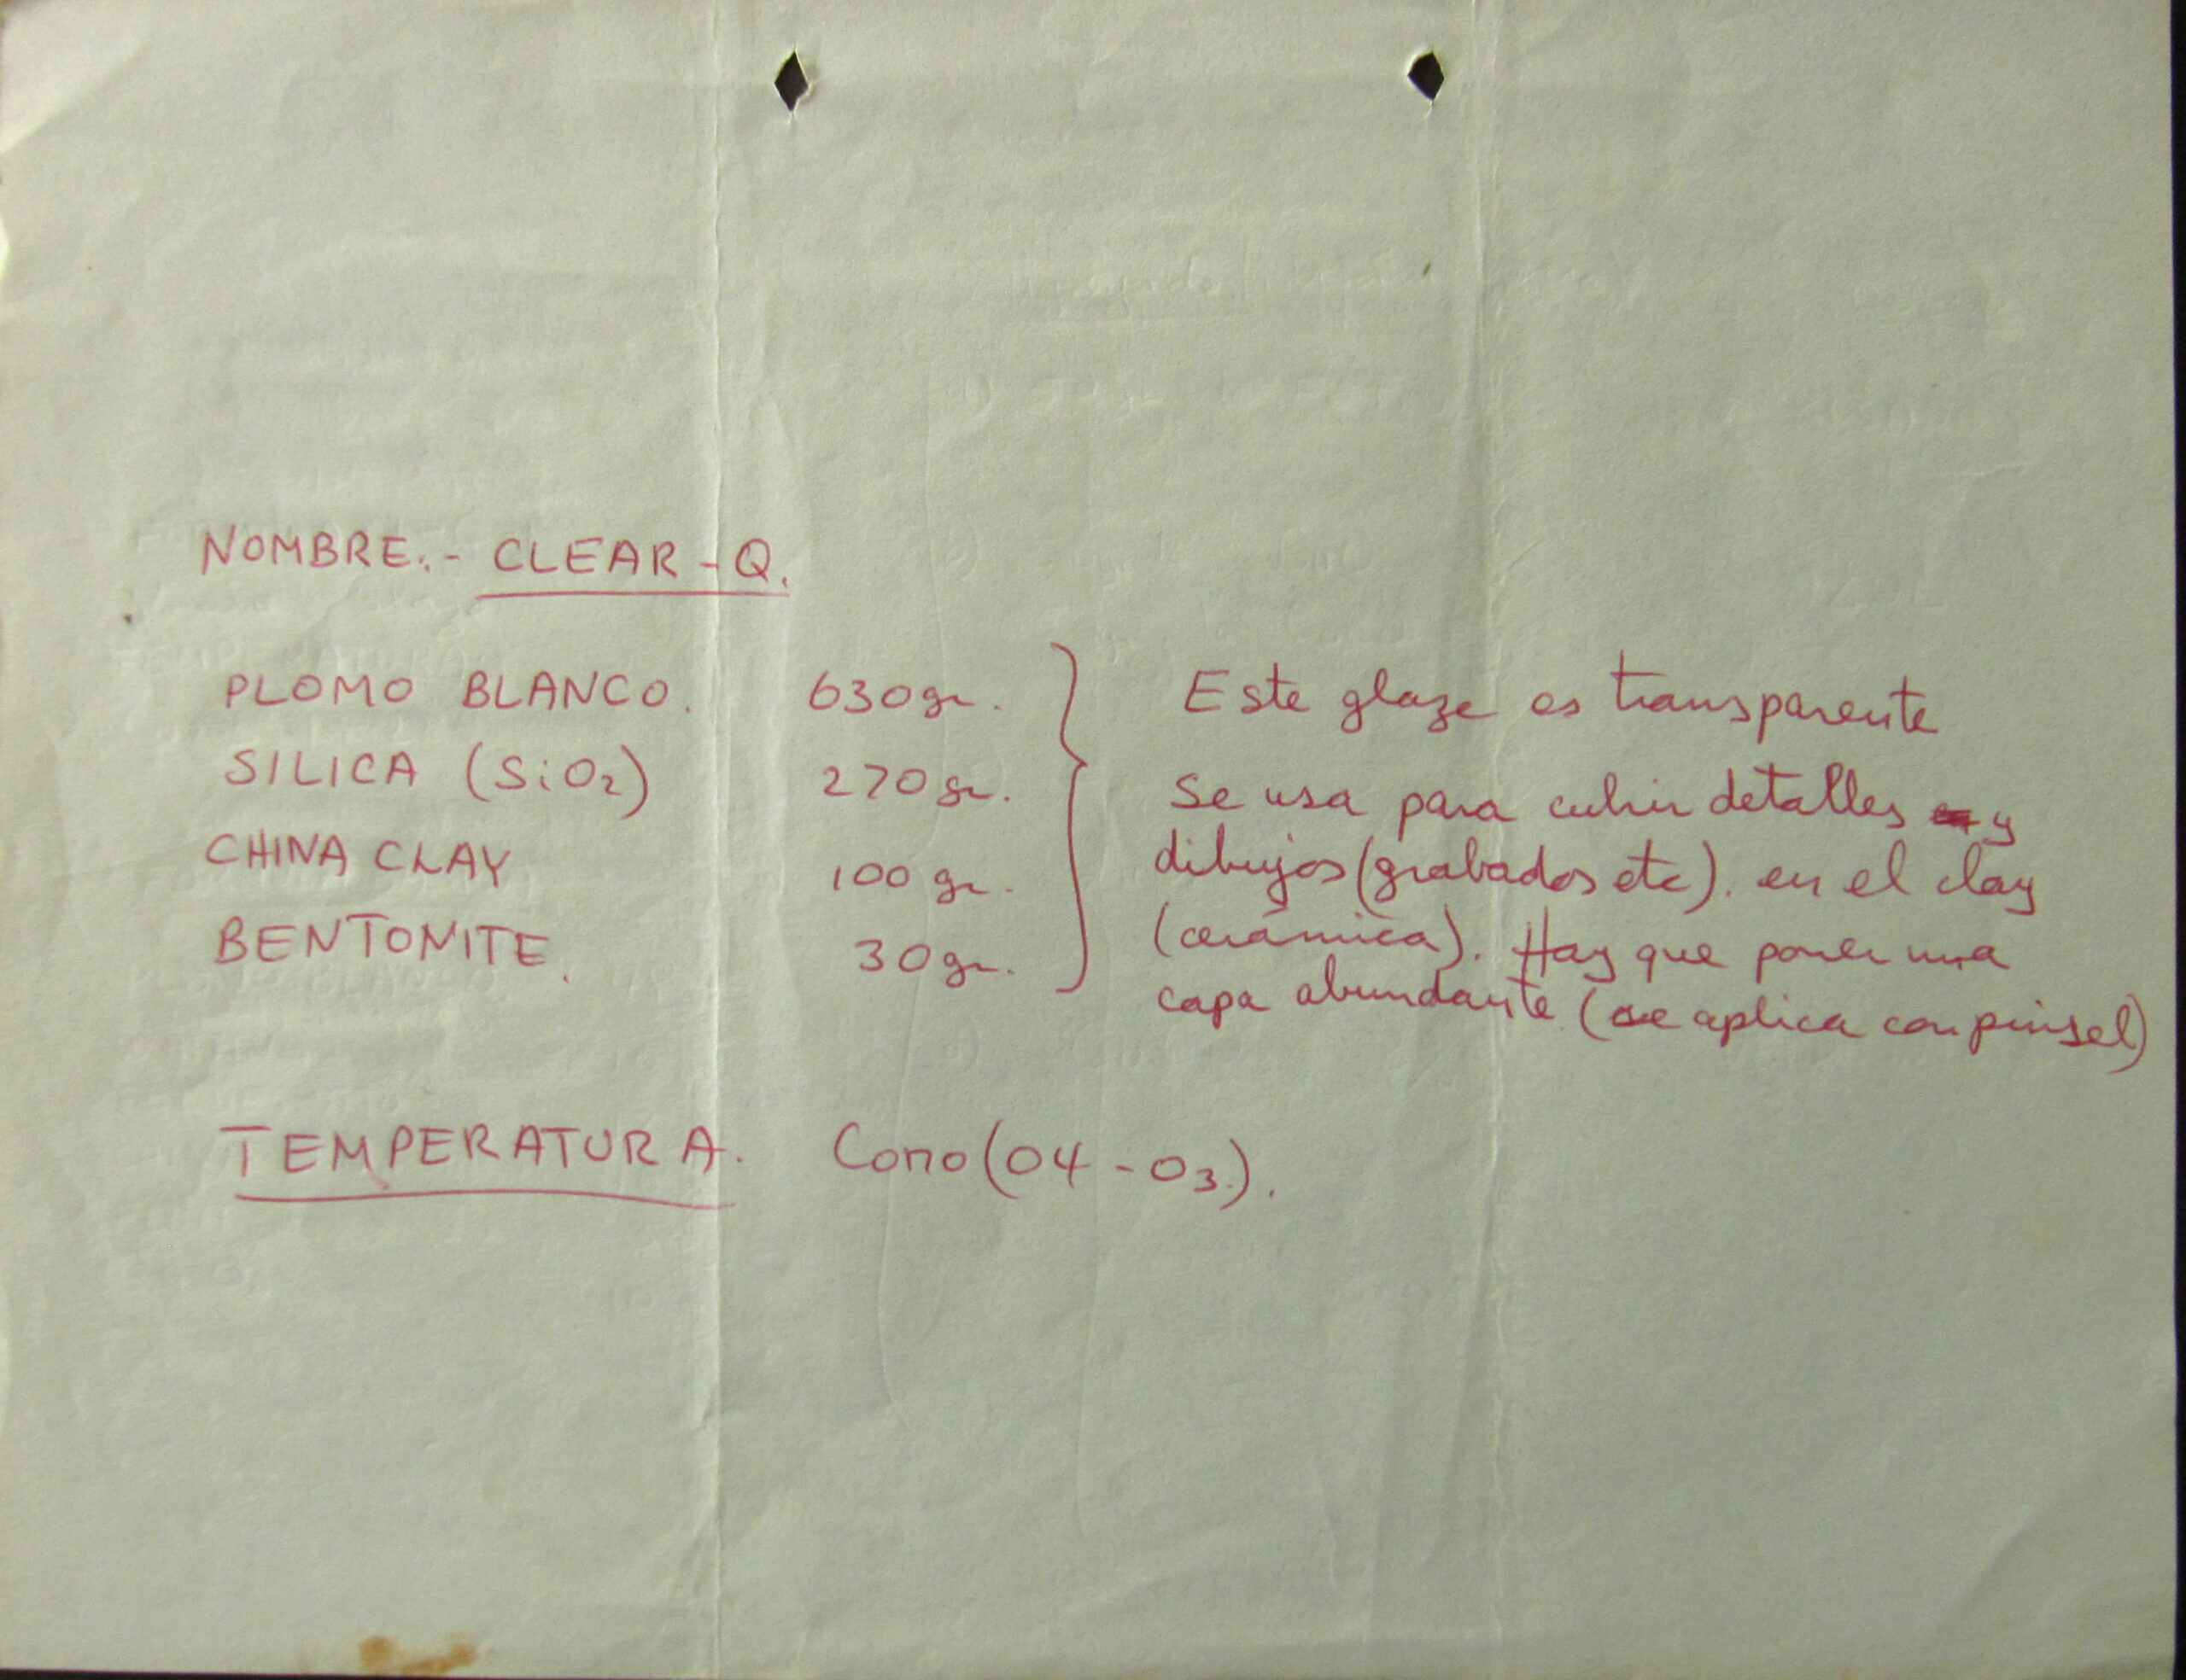 NOMBRE.- CLEAR - Q.
PLOMO BLANCO. 630 gr.
SILICA (SiO2) 270 gr.
CHINA CLAY 100 gr.
BENTONITE. 30 gr.
Este glaze es transparente
se usa para cubrir detalles y
dibujos (grabados etc). en el clay
(cerámica). Hay que poner una
capa abundante (se aplica con pinsel)
TEMPERATURA. Cono (04 - 03).